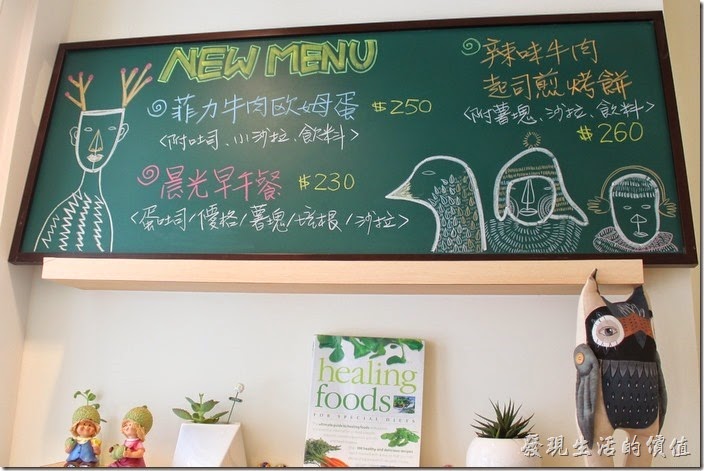 NEW MENU
菲力牛肉欧姆蛋 $250
<附吐司、小沙拉、飲料>
晨光早午餐 $230
<蛋吐司/優格/薯塊/培根/沙拉>
辣味牛肉
起司煎烤餅
<附薯塊、沙拉、飲料>
$260
healing
foods
FOR SPECIAL DIETS
發現生活的價值